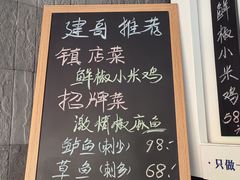 建哥推荐
镇店菜
鲜椒小米鸡
招牌菜
激情椒麻鱼
鲈鱼(刺少) 98.-
草鱼(刺多) 68.-
鲜椒
58
只做